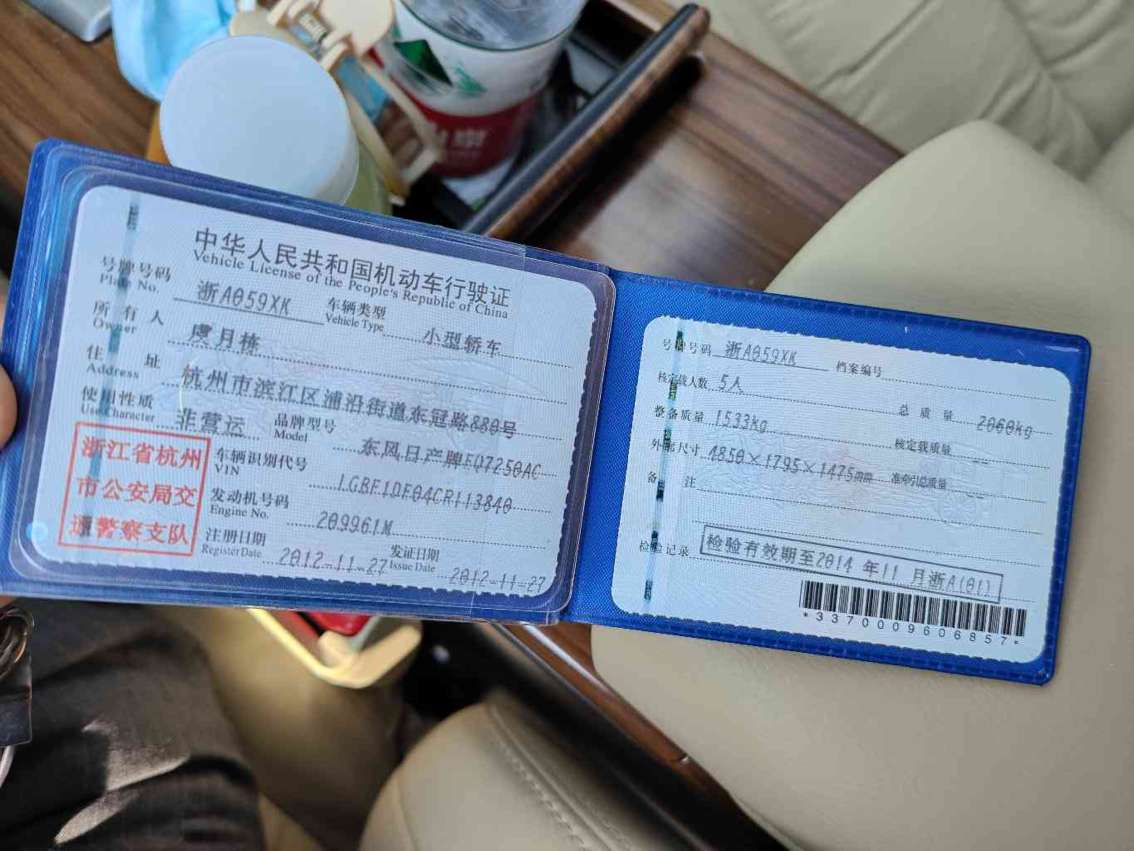 中华人民共和国机动车行驶证
Vehicle License of the People's Republic of China
号牌号码 浙A059XK 车辆类型 小型轿车
Plate No. Vehicle Type
所有人 虞月栋
Owner
住址 杭州市滨江区浦沿街道东冠路880号
Address
使用性质 非营运 品牌型号 东风日产牌EQ7250AC
Use Character Model
浙江省杭州
市公安局交
通警察支队
车辆识别代号 LGBF1DE04CR113840
VIN
发动机号码 209961M
Engine No.
注册日期 2012-11-27 发证日期 2012-11-27
Register Date Issue Date
号牌号码 浙A059XK 档案编号
核定载人数 5人 总质量 2060kg
整备质量 1533kg 核定载质量 --
外部尺寸 4850×1795×1475mm 准牵引总质量 --
备注
检验记录 检验有效期至2014年11月浙A(01)
*3370009606857*